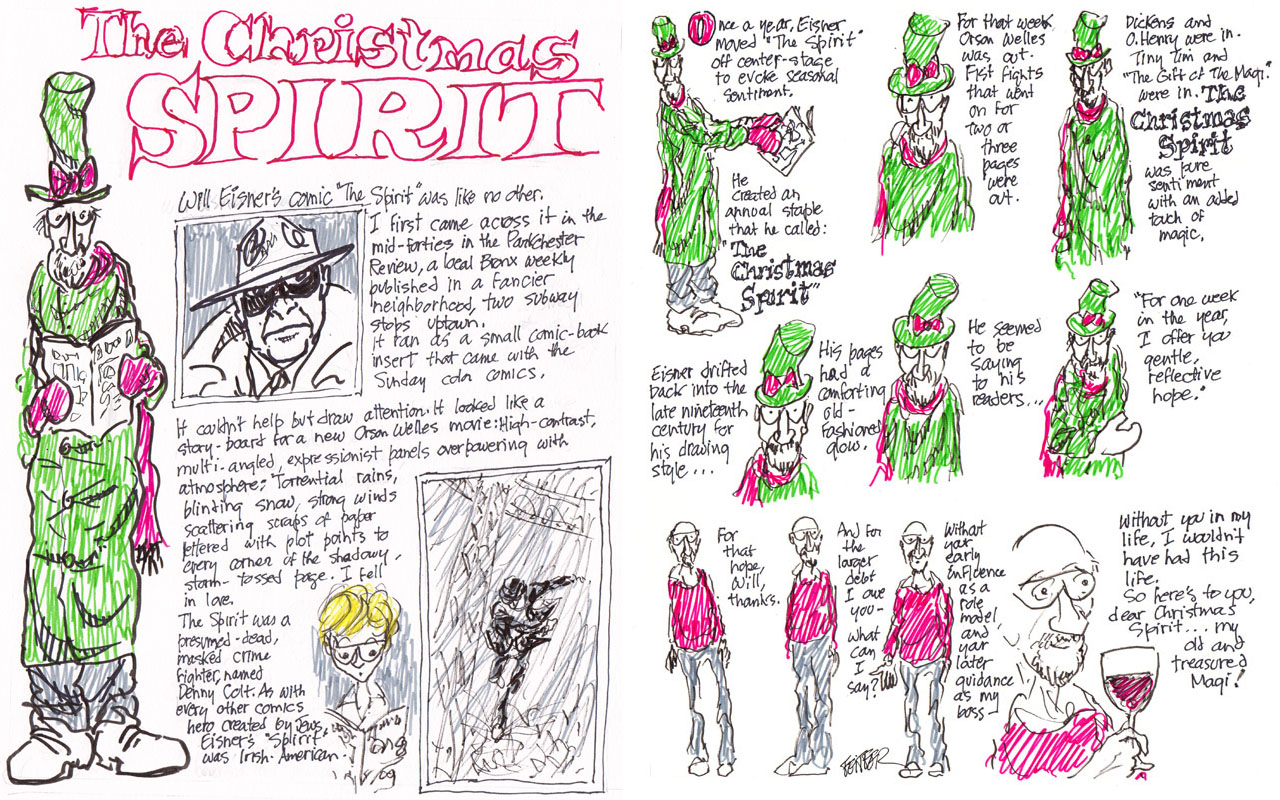 The Christmas
SPIRIT
Will Eisner's comic "The Spirit" was like no other.
I first came across it in the
mid-forties in the Parkchester
Review, a local Bronx weekly
published in a fancier
neighborhood, two subway
stops uptown.
It ran as a small comic-book
insert that came with the
Sunday color comics.
It couldn't help but draw attention. It looked like a
story-board for a new Orson Welles movie: High-contrast,
multi-angled, expressionist panels overpowering with
atmosphere: Torrential rains,
blinding snow, strong winds
scattering scraps of paper
lettered with plot points to
every corner of the shadowy,
storm-tossed page. I fell
in love.
The Spirit was a
presumed-dead,
masked crime
fighter, named
Denny Colt. As with
every other comics
hero created by Jews,
Eisner's "Spirit"
was Irish-American.
Once a year, Eisner
moved "The Spirit"
off center-stage
to evoke seasonal
sentiment.
He
created an
annual staple
that he called:
"The
Christmas
Spirit"
For that week
Orson Welles
was out.
Fist fights
that went
on for
two or
three
pages
were
out.
Dickens and
O. Henry were in.
Tiny Tim and
"The Gift of The Magi"
were in. The
Christmas
Spirit
was pure
sentiment
with an added
touch of
magic.
Eisner drifted
back into the
late nineteenth
century for
his drawing
style...
His pages
had a
comforting
old-
fashioned
glow.
He seemed
to be
saying
to his
readers...
"For one week
in the year,
I offer you
gentle,
reflective
hope."
For
that
hope,
Will,
thanks.
And for
the
larger
debt
I owe
you-
what
can
I
say?
Without
your
early
influence
as a
role
model,
and
your
later
guidance
as my
boss-
Without you in my
life, I wouldn't
have had this
life.
So here's to you,
dear Christmas
Spirit... my
old and
treasured
Magi!
FEIFFER